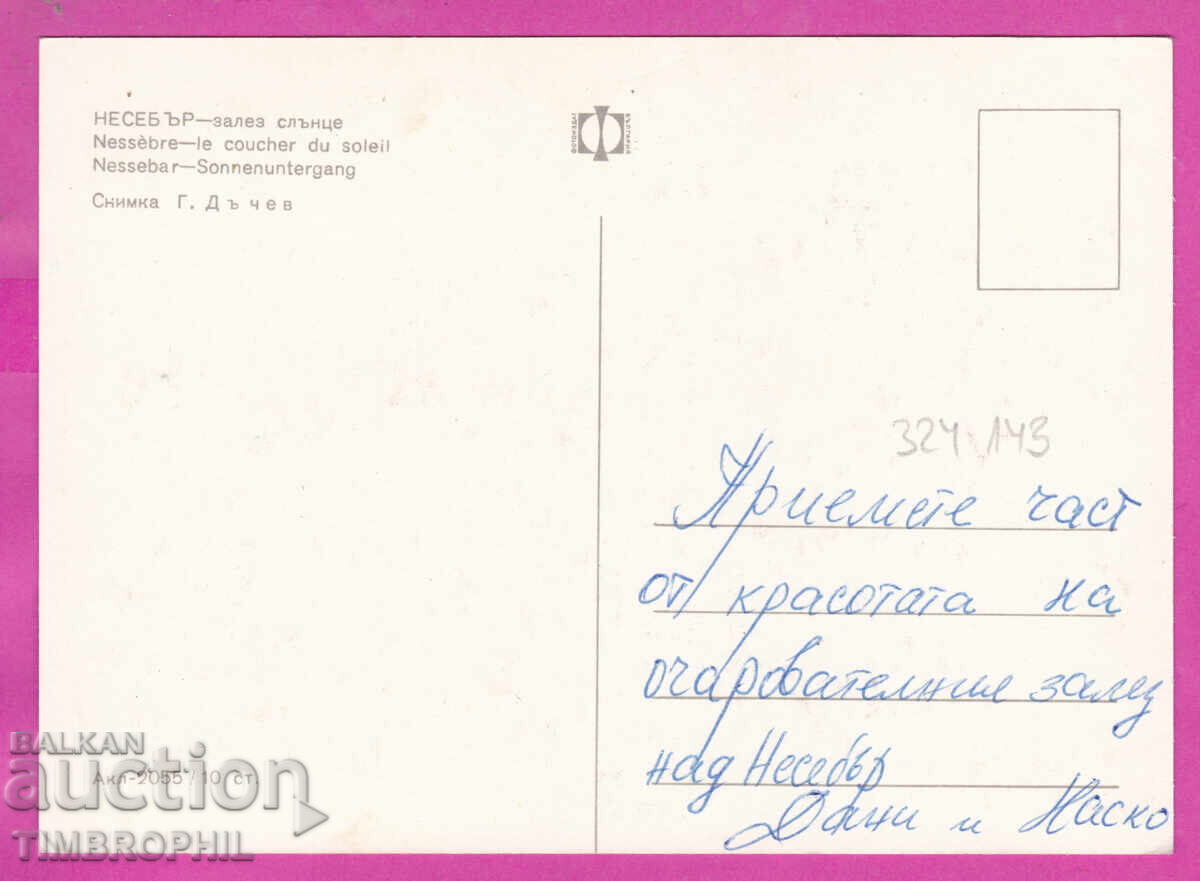 НЕСЕБЪР—залез слънце
Nessèbre—le coucher du soleil
Nessebar—Sonnenuntergang
Снимка Г. Дъчев
ФОТОИЗДАТ
БЪЛГАРИЯ
324143
Приемете част
от красотата на
очарователния залез
над Несебър
Дани и Наско
Акл-2055/10 ст.
BALKAN
auction
TIMBROPHIL